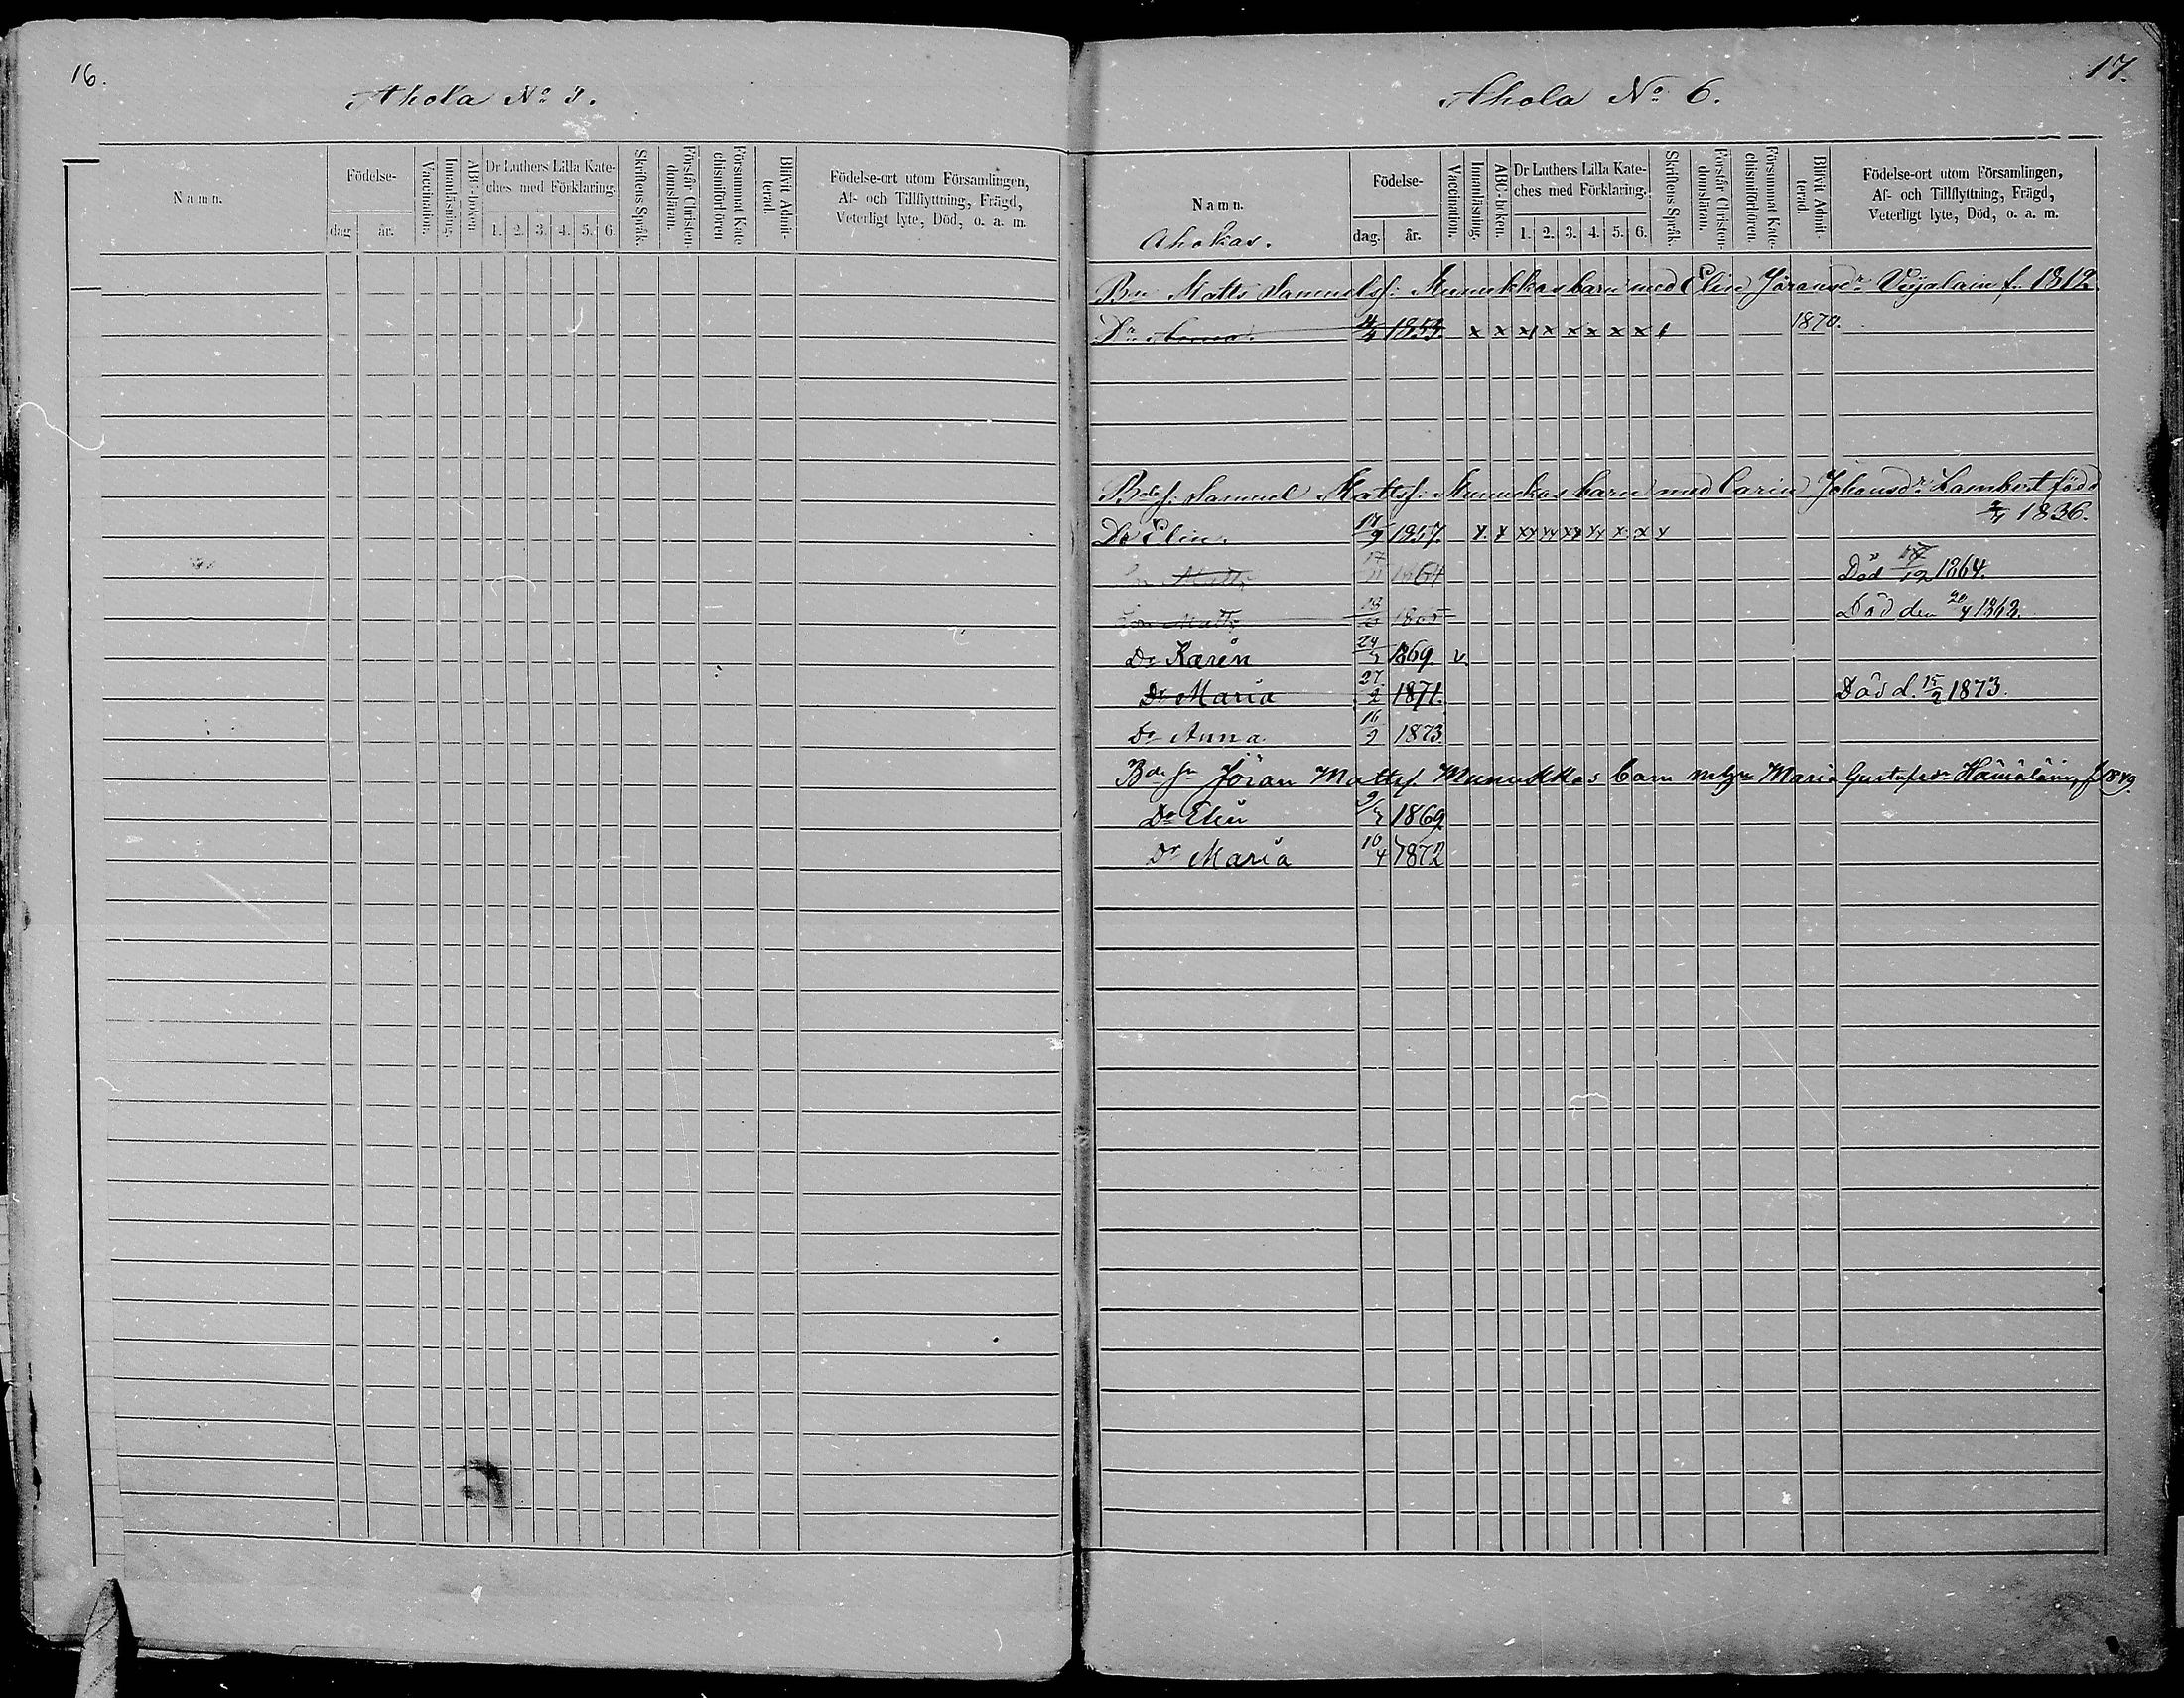 16.
Ahola No 3.
Namn.
Födelse-
dag
år.
Vaccination.
Innanläsning.
ABC-boken
Dr Luthers Lilla Kate-
ches med Förklaring.
1. 2. 3. 4. 5. 6.
Skriftens Språk.
Förstår Christen-
domsläran.
Försummat Kate
chismiförhören
Blifvit Admit-
terad.
Födelse-ort utom Församlingen,
Af- och Tillflyttning, Frägd,
Veterligt lyte, Död, o. a. m.
17.
Ahola No 6.
Namn.
Ahokas.
Födelse-
dag.
år.
Vaccination.
Innanläsning.
ABC-boken.
Dr Luthers Lilla Kate-
ches med Förklaring.
1. 2. 3. 4. 5. 6.
Skriftens Språk.
Förstår Christen-
domsläran.
Försummat Kate-
chismiförhören.
Blifvit Admit-
terad.
Födelse-ort utom Församlingen,
Af- och Tillflyttning, Frägd,
Veterligt lyte, Död, o. a. m.
Bn Matts Samuelsf. Munukkas barn med Elin Jöransdr Vijalain f. 1812.
Dr Anna. 1853. x x x x x x x x 1870.
Bdes f. Samuel Mattsf. Munukkas barn med Carin Johansdr Lambert född
1836.
Dr Elin. 17/9 1857. x x xx xx xx xx x x x
Son Matts 17/11 1864 Död 12 1864.
Son Matts 1865 Död den 20/4 1868.
Dr Karin 24/7 1869. v.
Dr Maria 27/2 1871. Död d. 15/2 1873.
Dr Anna 16/9 1873.
Bdes fn Jöran Mattsf. Munukkas barn m. hn Maria Gustafsdr Hämäläin, f. 1849.
Dr Elin 9/7 1869
Dr Maria 10/4 1872